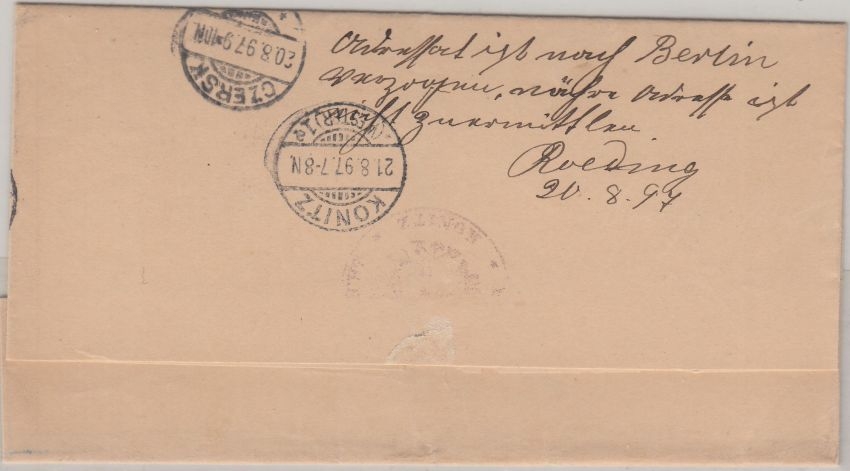 Adressat ist nach Berlin
verzogen, nähre Adresse ist
nicht zuermittlen
Roeding
20. 8. 97
CZERSK
20.8.97.9-10N.
(WESTPR) 1a
21.8.97.7-8N.
KONITZ
* KONITZ *